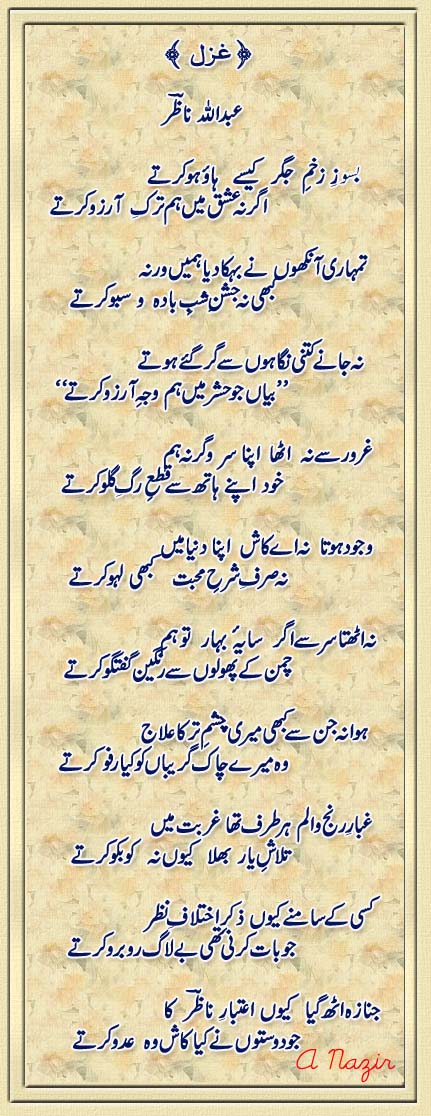 ﴿ غزل ﴾
عبداللہ ناظؔر
بسوزِ زخمِ جگر کیسے ہاؤ ہو کرتے
اگر نہ عشق میں ہم ترکِ آرزو کرتے
تمہاری آنکھوں نے بہکا دیا ہمیں ورنہ
کبھی نہ جشنِ شبِ بادہ و سبو کرتے
نہ جانے کتنی نگاہوں سے گر گئے ہوتے
’’بیاں جو حشر میں ہم وجہِ آرزو کرتے‘‘
غرور سے نہ اٹھا اپنا سر وگرنہ ہم
خود اپنے ہاتھ سے قطعِ رگِ گلو کرتے
وجود ہوتا نہ اے کاش اپنا دنیا میں
نہ صرفِ شرحِ محبت کبھی لہو کرتے
نہ اٹھتا سر سے اگر سایۂ بہار تو ہم
چمن کے پھولوں سے رنگین گفتگو کرتے
ہوا نہ جن سے کبھی میری چشمِ تر کا علاج
وہ میرے چاک گریباں کو کیا رفو کرتے
غبارِ رنج و الم ہر طرف تھا غربت میں
تلاشِ یار بھلا کیوں نہ کو بکو کرتے
کسی کے سامنے کیوں ذکرِ اختلافِ نظر
جو بات کرنی تھی بے لاگ روبرو کرتے
جنازہ اٹھ گیا کیوں اعتبارِ ناظؔر کا
جو دوستوں نے کیا کاش وہ عدو کرتے
A Nazir